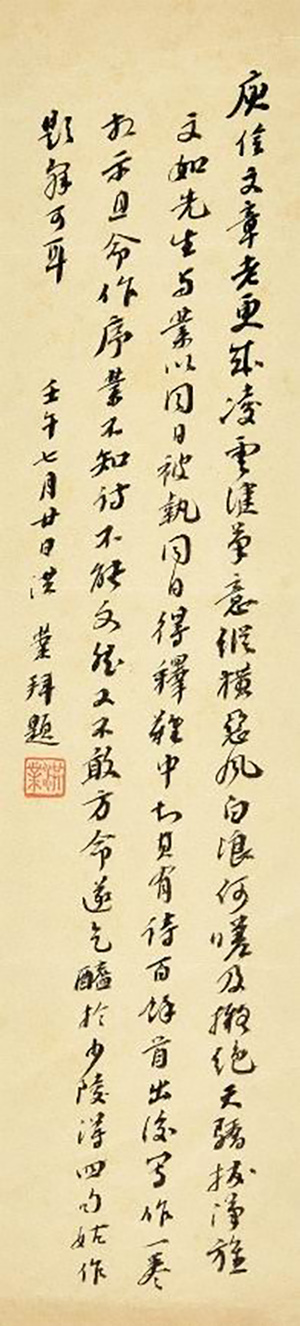 庾信文章老更成凌雲健筆意縱橫惡風白浪何嗟及撇絕天驕拔漢旌
文如先生與業以同日被執同日得釋難中知其有詩百餘首出後写作一卷
相示且命作序業不知詩不能文然又不敢方命遂乞醯於少陵得四句姑作
題辭可耳
壬午七月廿日洪業拜題
洪業